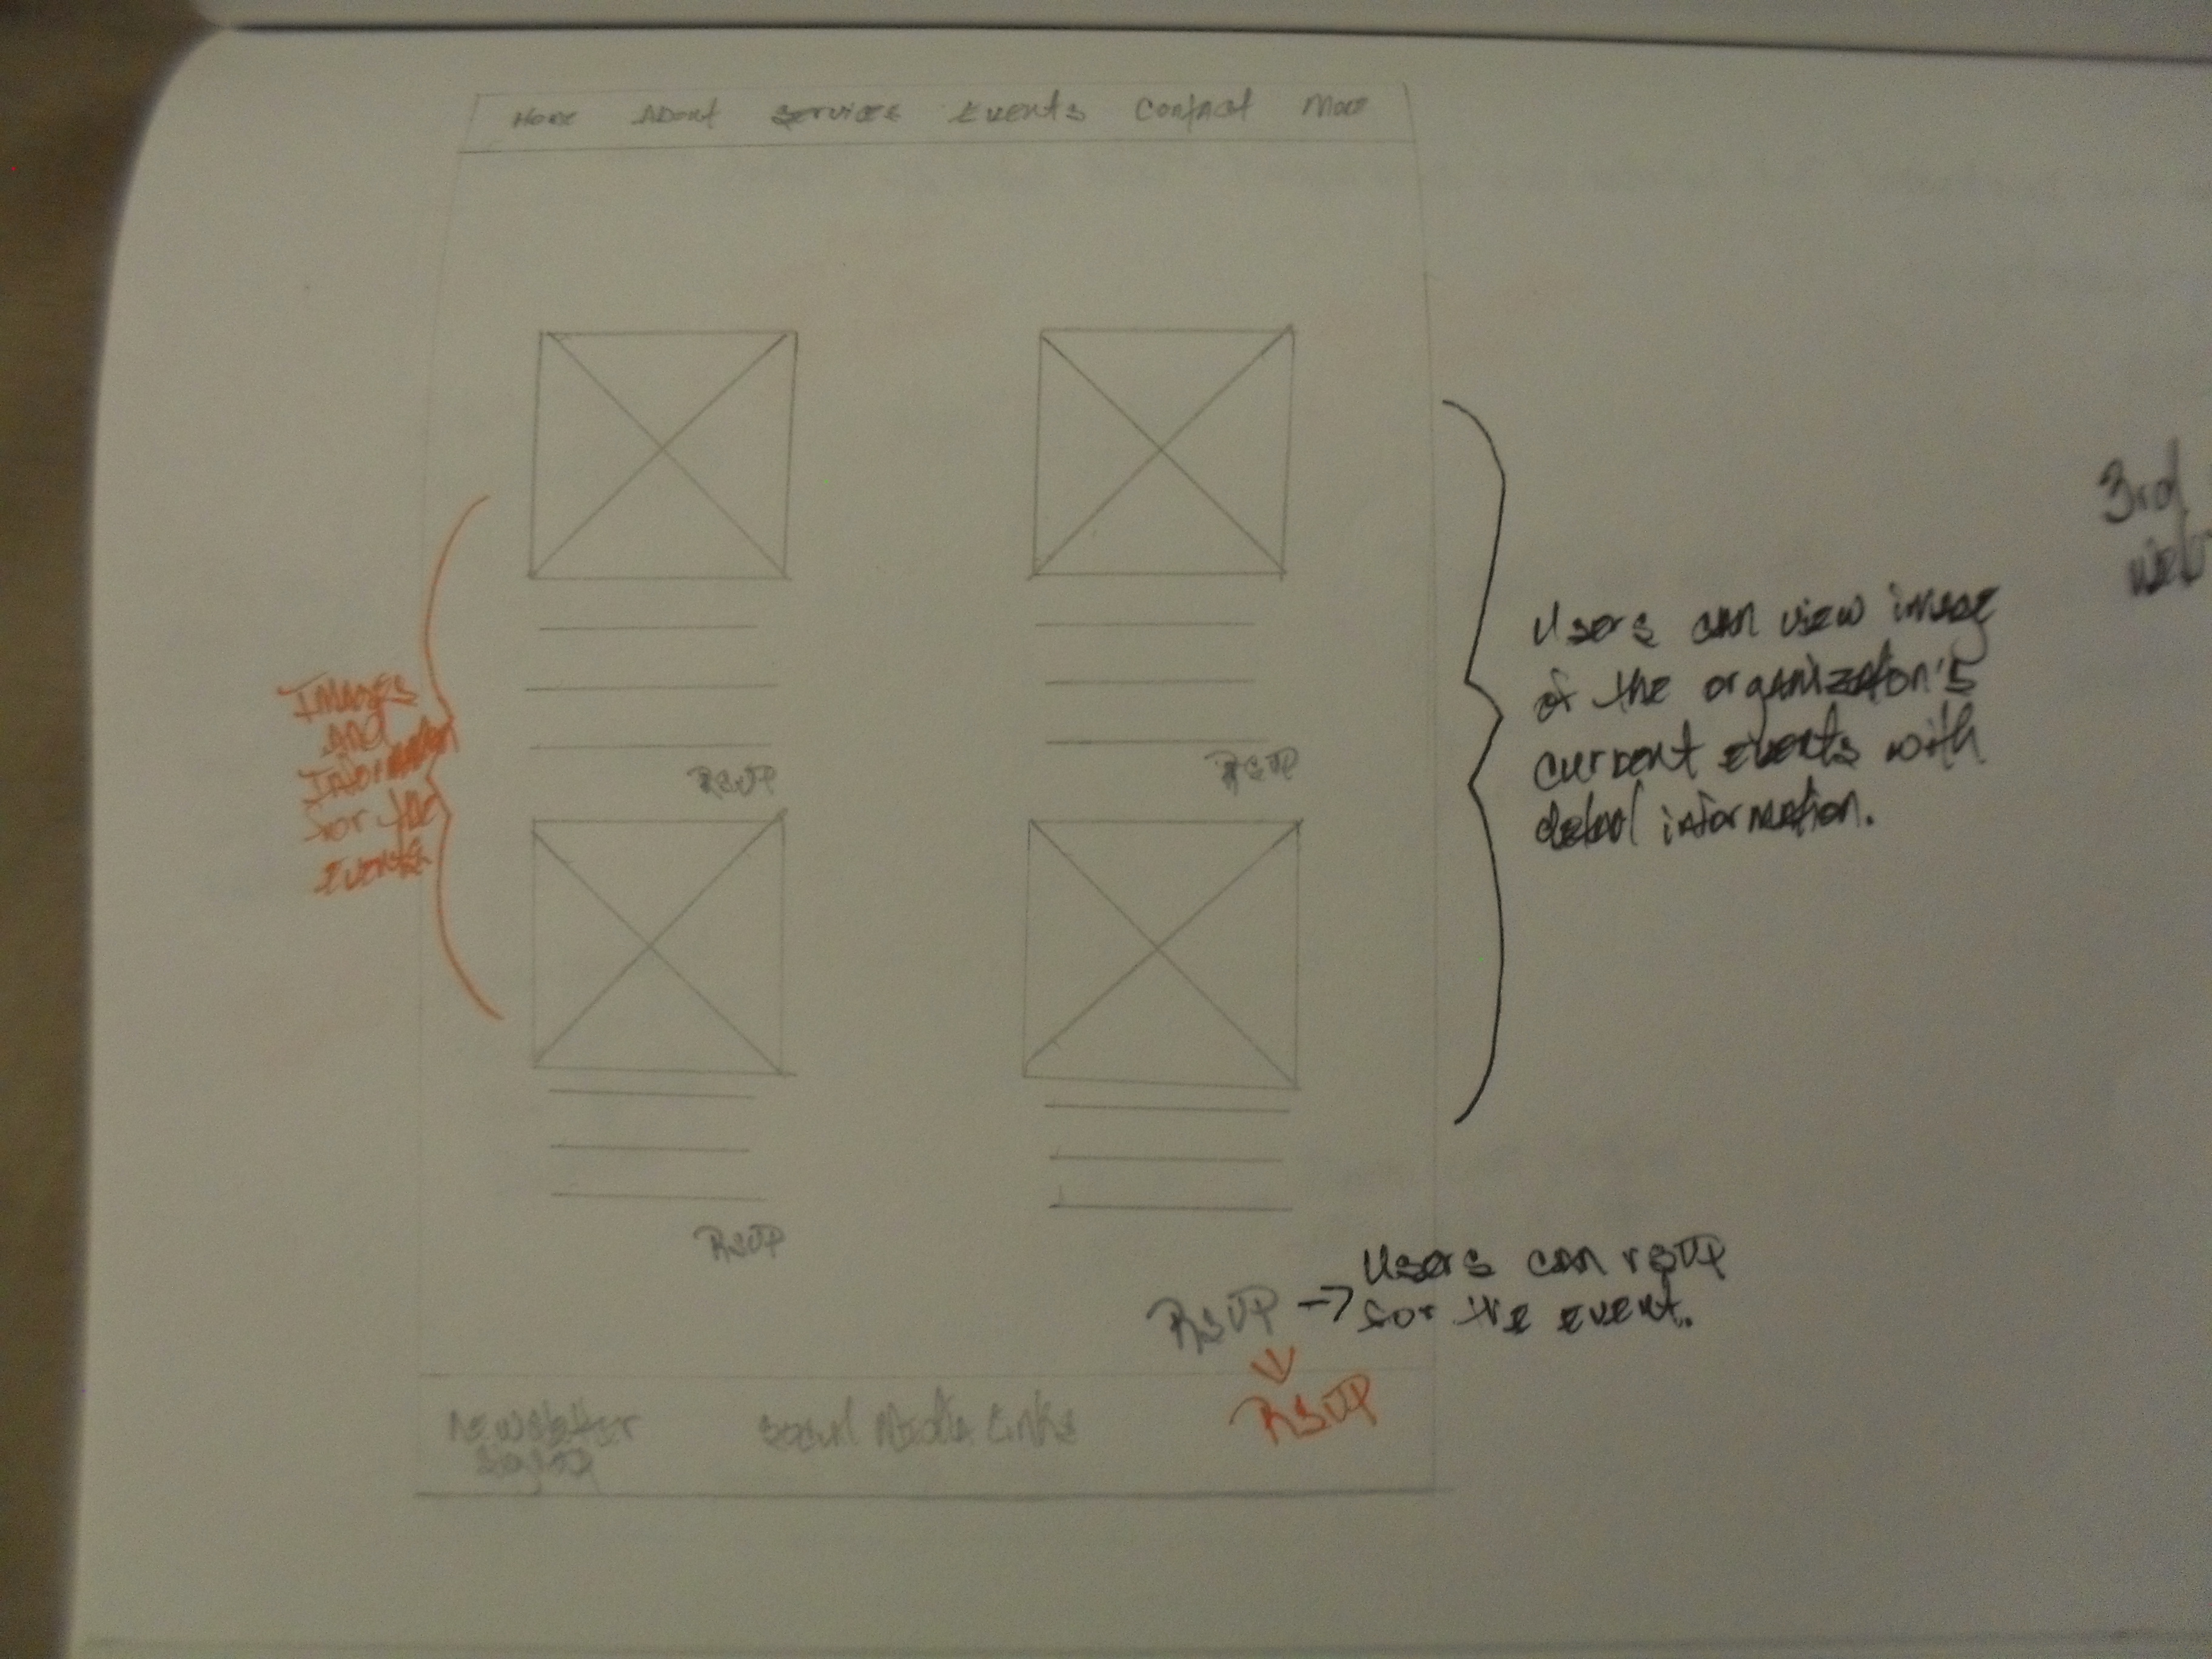 Home About Services Events Contact More
Images
and
Information
for the
Events
RSVP RSVP
Users can view image
of the organizaton's
current events with
detail information.
3rd
RSVP
RSVP -> Users can rsvp
for the event.
RSVP
Newsletter
Signup
Social Media Links